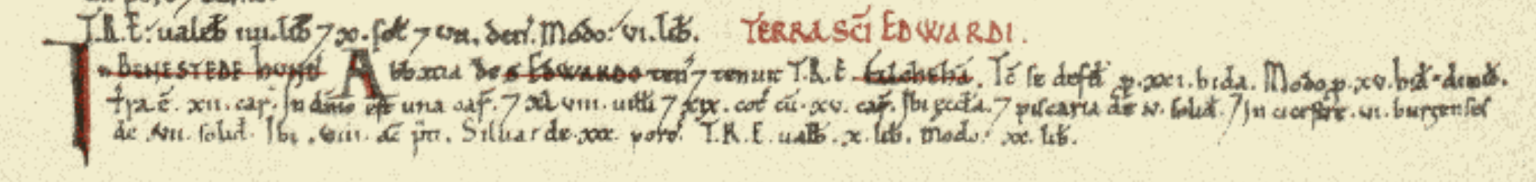 T.R.E. ualeb iiii. lib 7 x. sol 7 vii. den. Modo. vi. lib. TERRA SCI EDWARDI.
In BENESTEDE HUND Abbatia de S EDWARDO ten 7 tenuit T.R.E. Tc se defd p. xxi. hida. Modo p. xv. hid 7 dimid.
Tra e. xii. car. In dnio est una car. 7 xl viii. uilli 7 xix. cot cu. xv. car. Ibi æccla. 7 piscaria de v. solid. 7 In . vi. burgenses
de .vii. solid. Ibi .viii. ac pti. Silua de .xxx. porc. T.R.E. ualb .x. lib. modo .xx. lib.